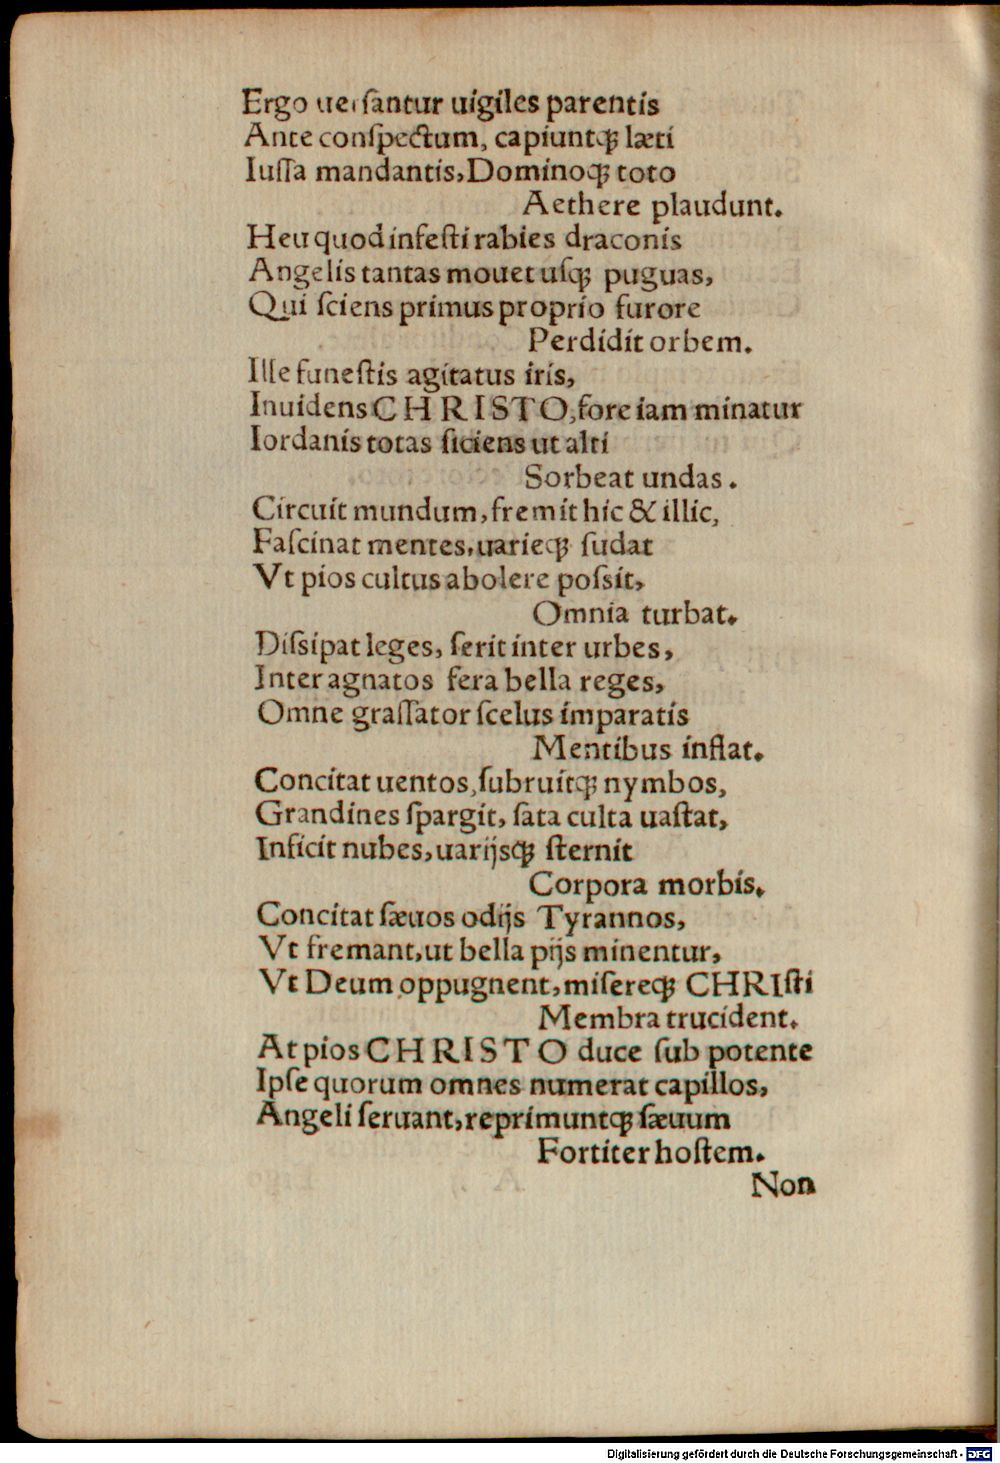 Ergo uerſantur uigiles parentis
Ante conſpectum, capiuntq́; læti
Iuſſa mandantis, Dominoq́; toto
Aethere plaudunt.
Heu quod infeſti rabies draconis
Angelis tantas mouet uſq́; puguas,
Qui ſciens primus proprio furore
Perdidit orbem.
Ille funeſtis agitatus iris,
Inuidens CHRISTO, fore iam minatur
Iordanis totas ſiciens ut alti
Sorbeat undas.
Circuit mundum, fremit hic & illic,
Faſcinat mentes, uarieq́; ſudat
Vt pios cultus abolere poſsit,
Omnia turbat.
Diſsipat leges, ſerit inter urbes,
Inter agnatos fera bella reges,
Omne graſſator ſcelus imparatis
Mentibus inflat.
Concitat uentos, ſubruitq́; nymbos,
Grandines ſpargit, ſata culta uaſtat,
Inficit nubes, uarijsq́; ſternit
Corpora morbis.
Concitat ſæuos odijs Tyrannos,
Vt fremant, ut bella pijs minentur,
Vt Deum oppugnent, miſereq́; CHRIſti
Membra trucident.
At pios CHRISTO duce ſub potente
Ipſe quorum omnes numerat capillos,
Angeli ſeruant, reprimuntq́; ſæuum
Fortiter hoſtem.
Non
Digitalisierung gefördert durch die Deutsche Forschungsgemeinschaft - DFG